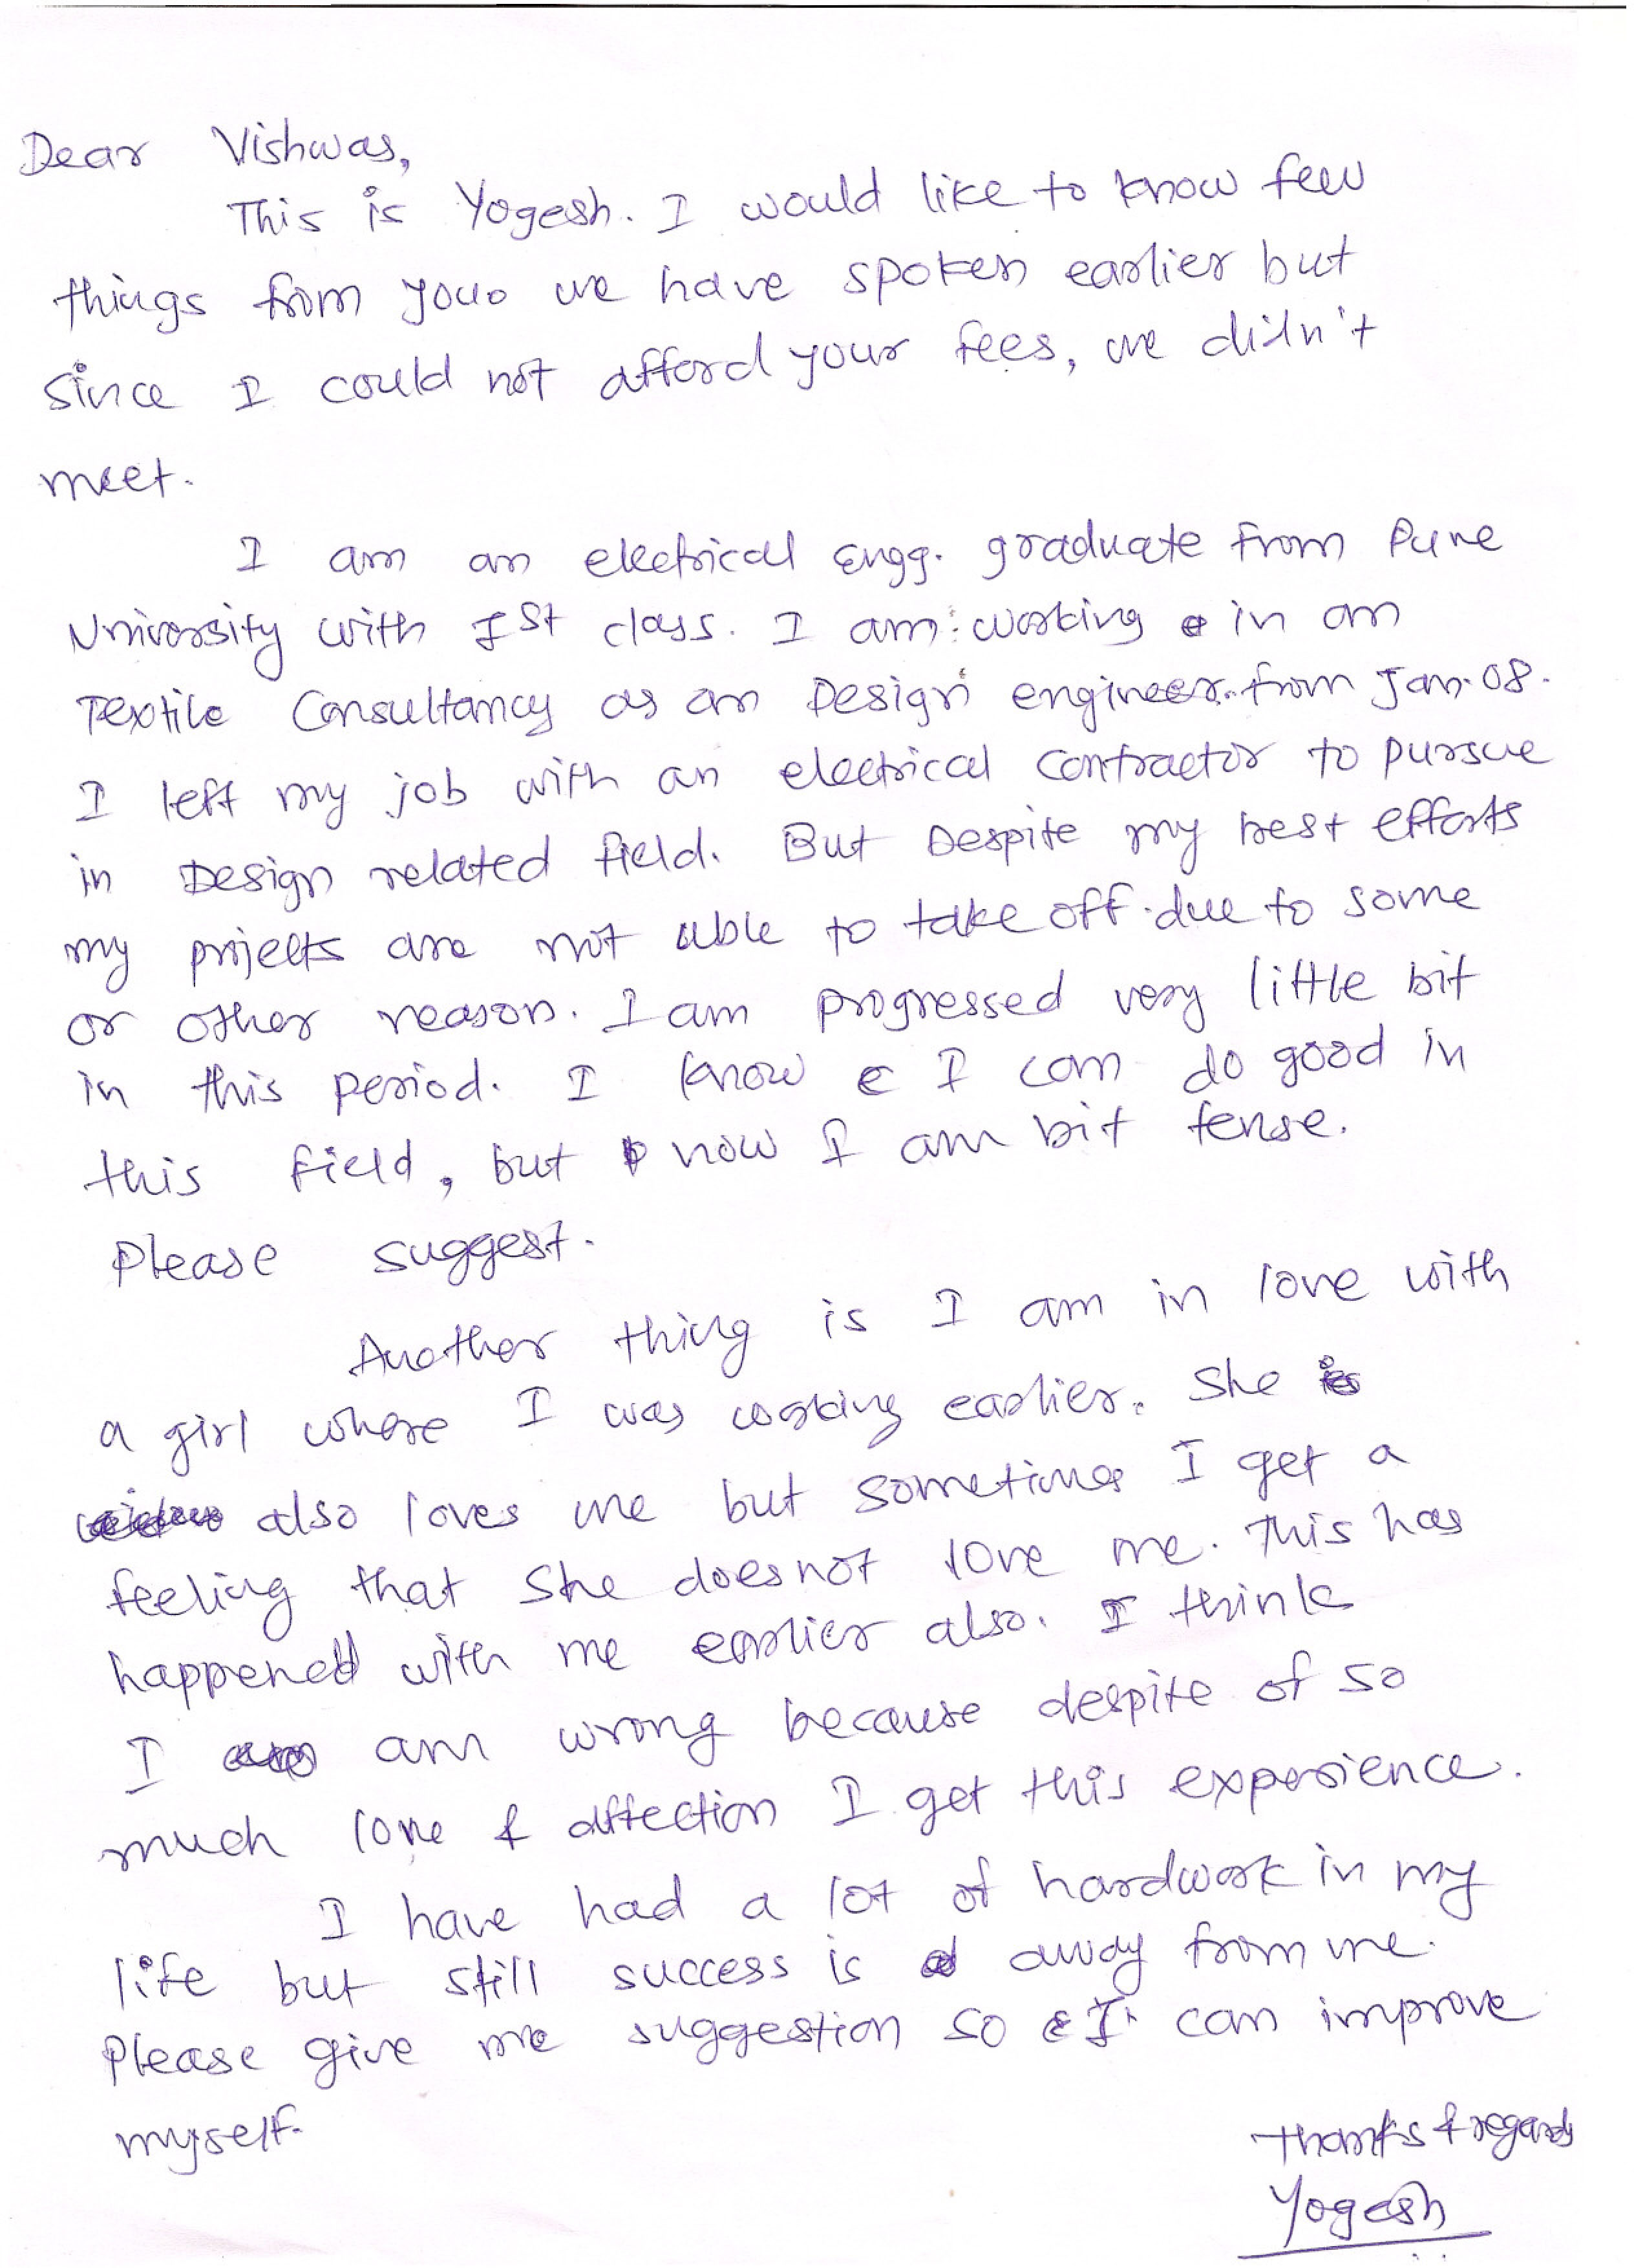 Dear Vishwas,
This is Yogesh. I would like to know few
things from you. we have spoken earlier but
since I could not afford your fees, we didn't
meet.
I am an electrical Engg. graduate from Pune
University with Ist class. I am working in an
Textile Consultancy as an Design engineer from Jan. 08.
I left my job with an electrical contractor to pursue
in Design related field. But Despite my best efforts
my projects are not able to take off due to some
or other reason. I am progressed very little bit
in this period. I know I can do good in
this field, but now I am bit tense.
Please suggest.
Another thing is I am in love with
a girl where I was working earlier. She
also loves me but sometimes I get a
feeling that She does not love me. This has
happened with me earlier also. I think
I am wrong because despite of so
much love & affection I get this experience.
I have had a lot of hardwork in my
life but still success is away from me.
Please give me suggestion so I can improve
myself.
Thanks & regards
Yogesh